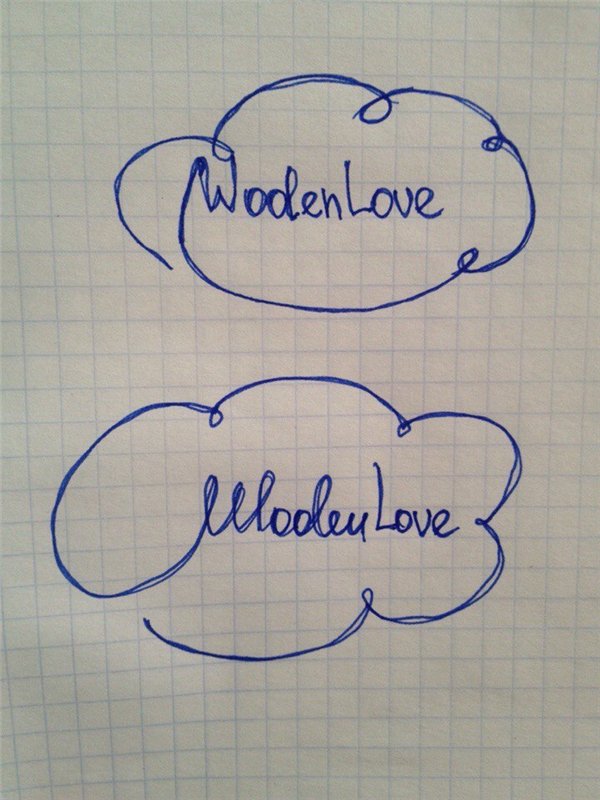 WoodenLove
WoodenLove